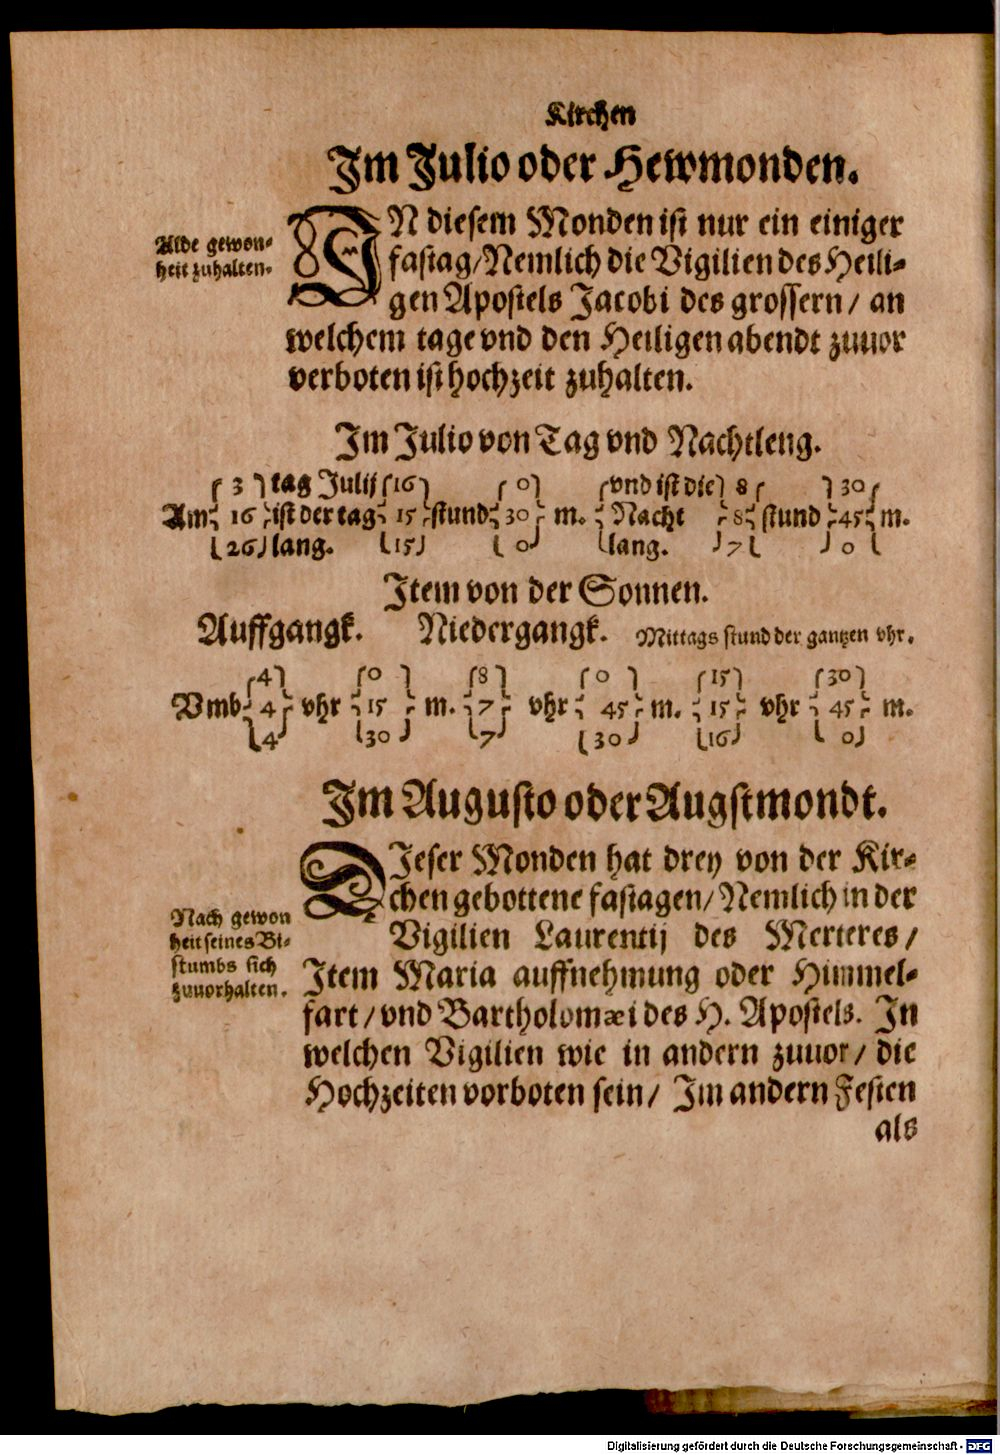 Kirchen
Im Julio oder Hewmonden.
Alde gewon-
heit zuhalten.
IN diesem Monden ist nur ein einiger
fastag/Nemlich die Vigilien des Heili-
gen Apostels Jacobi des grossern/ an
welchem tage vnd den Heiligen abendt zuuor
verboten ist hochzeit zuhalten.
Im Julio von Tag vnd Nachtleng.
3 tag Julij 16 0 vnd ist die 8 30
Am 16 ist der tag 15 stund 30 m. Nacht 8 stund 45 m.
26 lang. 15 0 lang. 7 0
Item von der Sonnen.
Auffgangk. Niedergangk. Mittags stund der gantzen vhr.
4 0 8 0 15 30
Vmb 4 vhr 15 m. 7 vhr 45 m. 15 vhr 45 m.
4 30 7 30 16 0
Im Augusto oder Augstmondt.
Nach gewon
heit seines Bi-
stumbs sich
zuuorhalten.
DJeser Monden hat drey von der Kir-
chen gebottene fastagen/Nemlich in der
Vigilien Laurentij des Merteres/
Item Maria auffnehmung oder Himmel-
fart/vnd Bartholomæi des H. Apostels. In
welchen Vigilien wie in andern zuuor/ die
Hochzeiten vorboten sein/ Im andern Festen
als
Digitalisierung gefördert durch die Deutsche Forschungsgemeinschaft - DFG